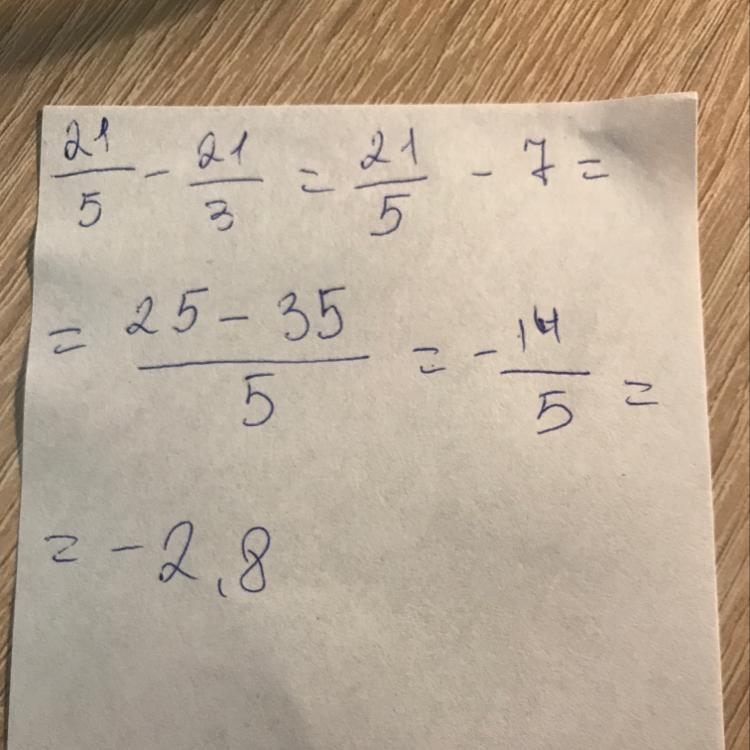 21/5 - 21/3 = 21/5 - 7 =
= 25 - 35/5 = - 14/5 =
= - 2,8